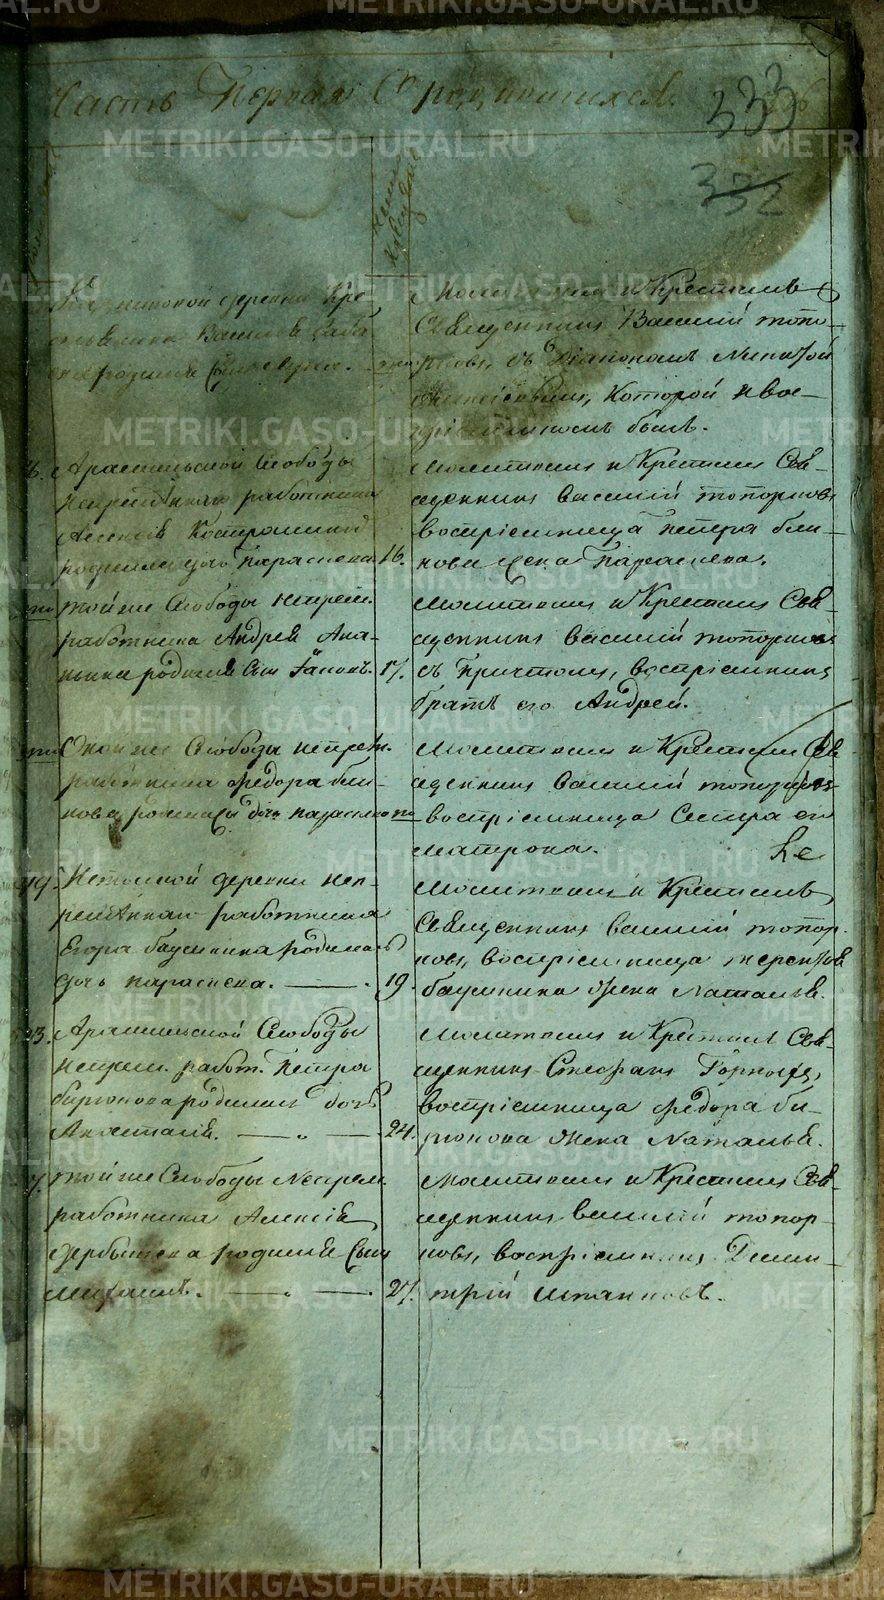 Часть Первая О родившихся.
333
332
деревни Кре
Василья
родился сынъ
Молитвилъ и Крестилъ
Священникъ Василий Топо-
рковъ, съ Дiакономъ Никитой
Алексѣевымъ, Которой и вос-
прiемникомъ былъ.
6. Арамильской Слободы
непремѣннаго работника
Алексѣя Костромина
родилась дочь Параскева 16.
Молитвилъ и Крестилъ Свя-
щенникъ Василiй Топорковъ
воспрiемница Петра Бли-
нова жена Параскева.
Той же Слободы непрем.
работника Андрея Ана-
ньина родился Сынъ Iаковъ. 17.
Молитвилъ и Крестилъ Свя-
щенникъ Василiй Топорковъ
съ Причтомъ, воспрiемникъ
братъ его Андрей.
Оной же Слободы непрем.
работника Федора Бли-
нова родилась дочь Параскева
Молитвилъ и Крестилъ Свя
щенникъ Василiй Топорковъ
воспрiемница Сестра его
Матрона.
19. деревни Неп-
ремѣннаго работника
Егора Баушкина родилась
дочь Параскева. 19.
Молитвилъ и Крестилъ
Священникъ Василiй Топор-
ковъ, воспрiемница
Баушкина Жена Наталья.
23. Арамильской Слободы
Непрем. работ. Петра
Бирюкова родилась дочь
Анастасiя. 24.
Молитвилъ и Крестилъ Свя-
щенникъ Стефанъ Горныхъ,
воспрiемница Федора Би-
рюкова Жена Наталья.
7. Той же Слободы Непрем.
работника Алексѣя
Щербакова родился Сынъ
Михаилъ. 27.
Молитвилъ и Крестилъ Свя-
щенникъ Василiй Топор-
ковъ, воспрiемникъ Дими-
трiй
METRIKI.GASO-URAL.RU